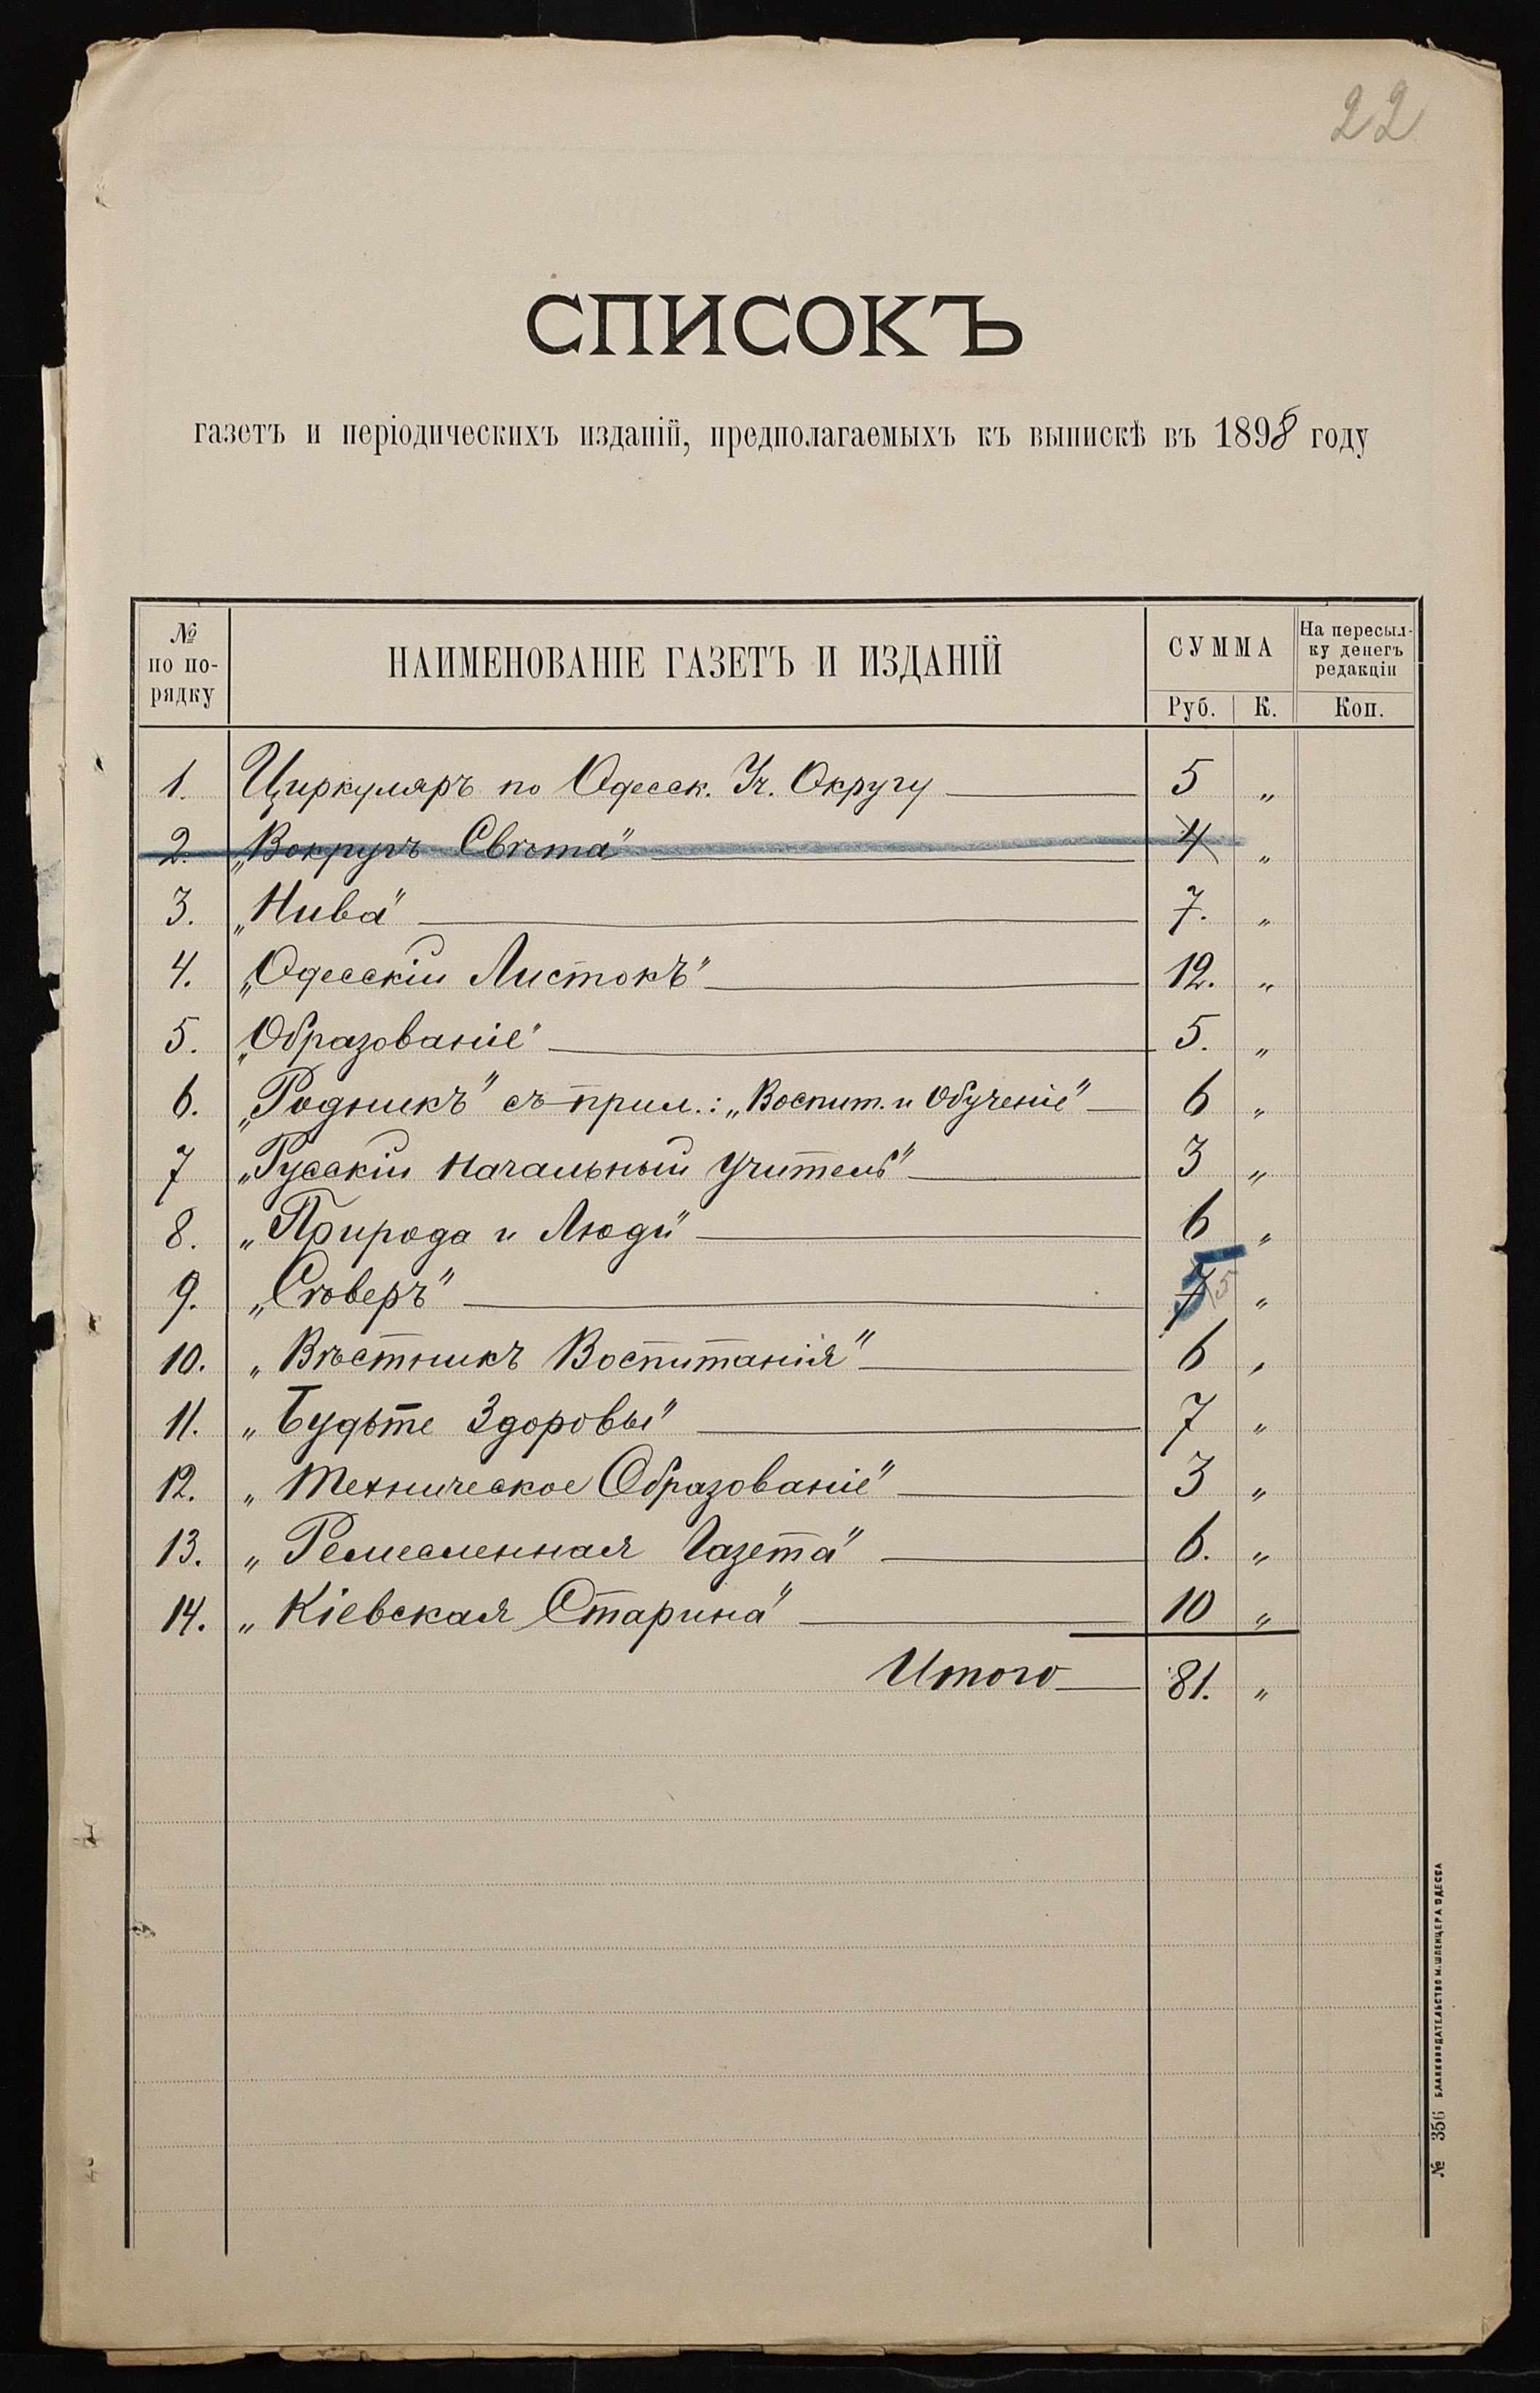 22
СПИСОКЪ
газетъ и періодическихъ изданій, предполагаемыхъ къ выпискѣ въ 1898 году
№ по по-рядку
НАИМЕНОВАНІЕ ГАЗЕТЪ И ИЗДАНІЙ
СУММА
Руб. К.
На пересыл-
ку денегъ
редакціи
Коп.
1. Циркуляръ по Одесск. Уч. Округу 5 „
2. „Вокругъ Свѣта“ 4 „
3. „Нива“ 7. „
4. „Одесскій Листокъ“ 12. „
5. „Образованіе“ 5. „
6. „Родникъ“ съ прил.: „Воспит. и Обученіе“ 6 „
7 „Русскій Начальный Учитель“ 3 „
8. „Природа и Люди“ 6 „
9. „Сѣверъ“ 7 5 „
10. „Вѣстникъ Воспитанія“ 6 „
11. „Будьте Здоровы“ 7 „
12. „Техническое Образованіе“ 3 „
13. „Ремесленная Газета“ 6. „
14. „Кіевская Старина“ 10 „
Итого 81. „
№ 356 БЛАНКОИЗДАТЕЛЬСТВО М. ШПЕНЦЕРА ОДЕССА